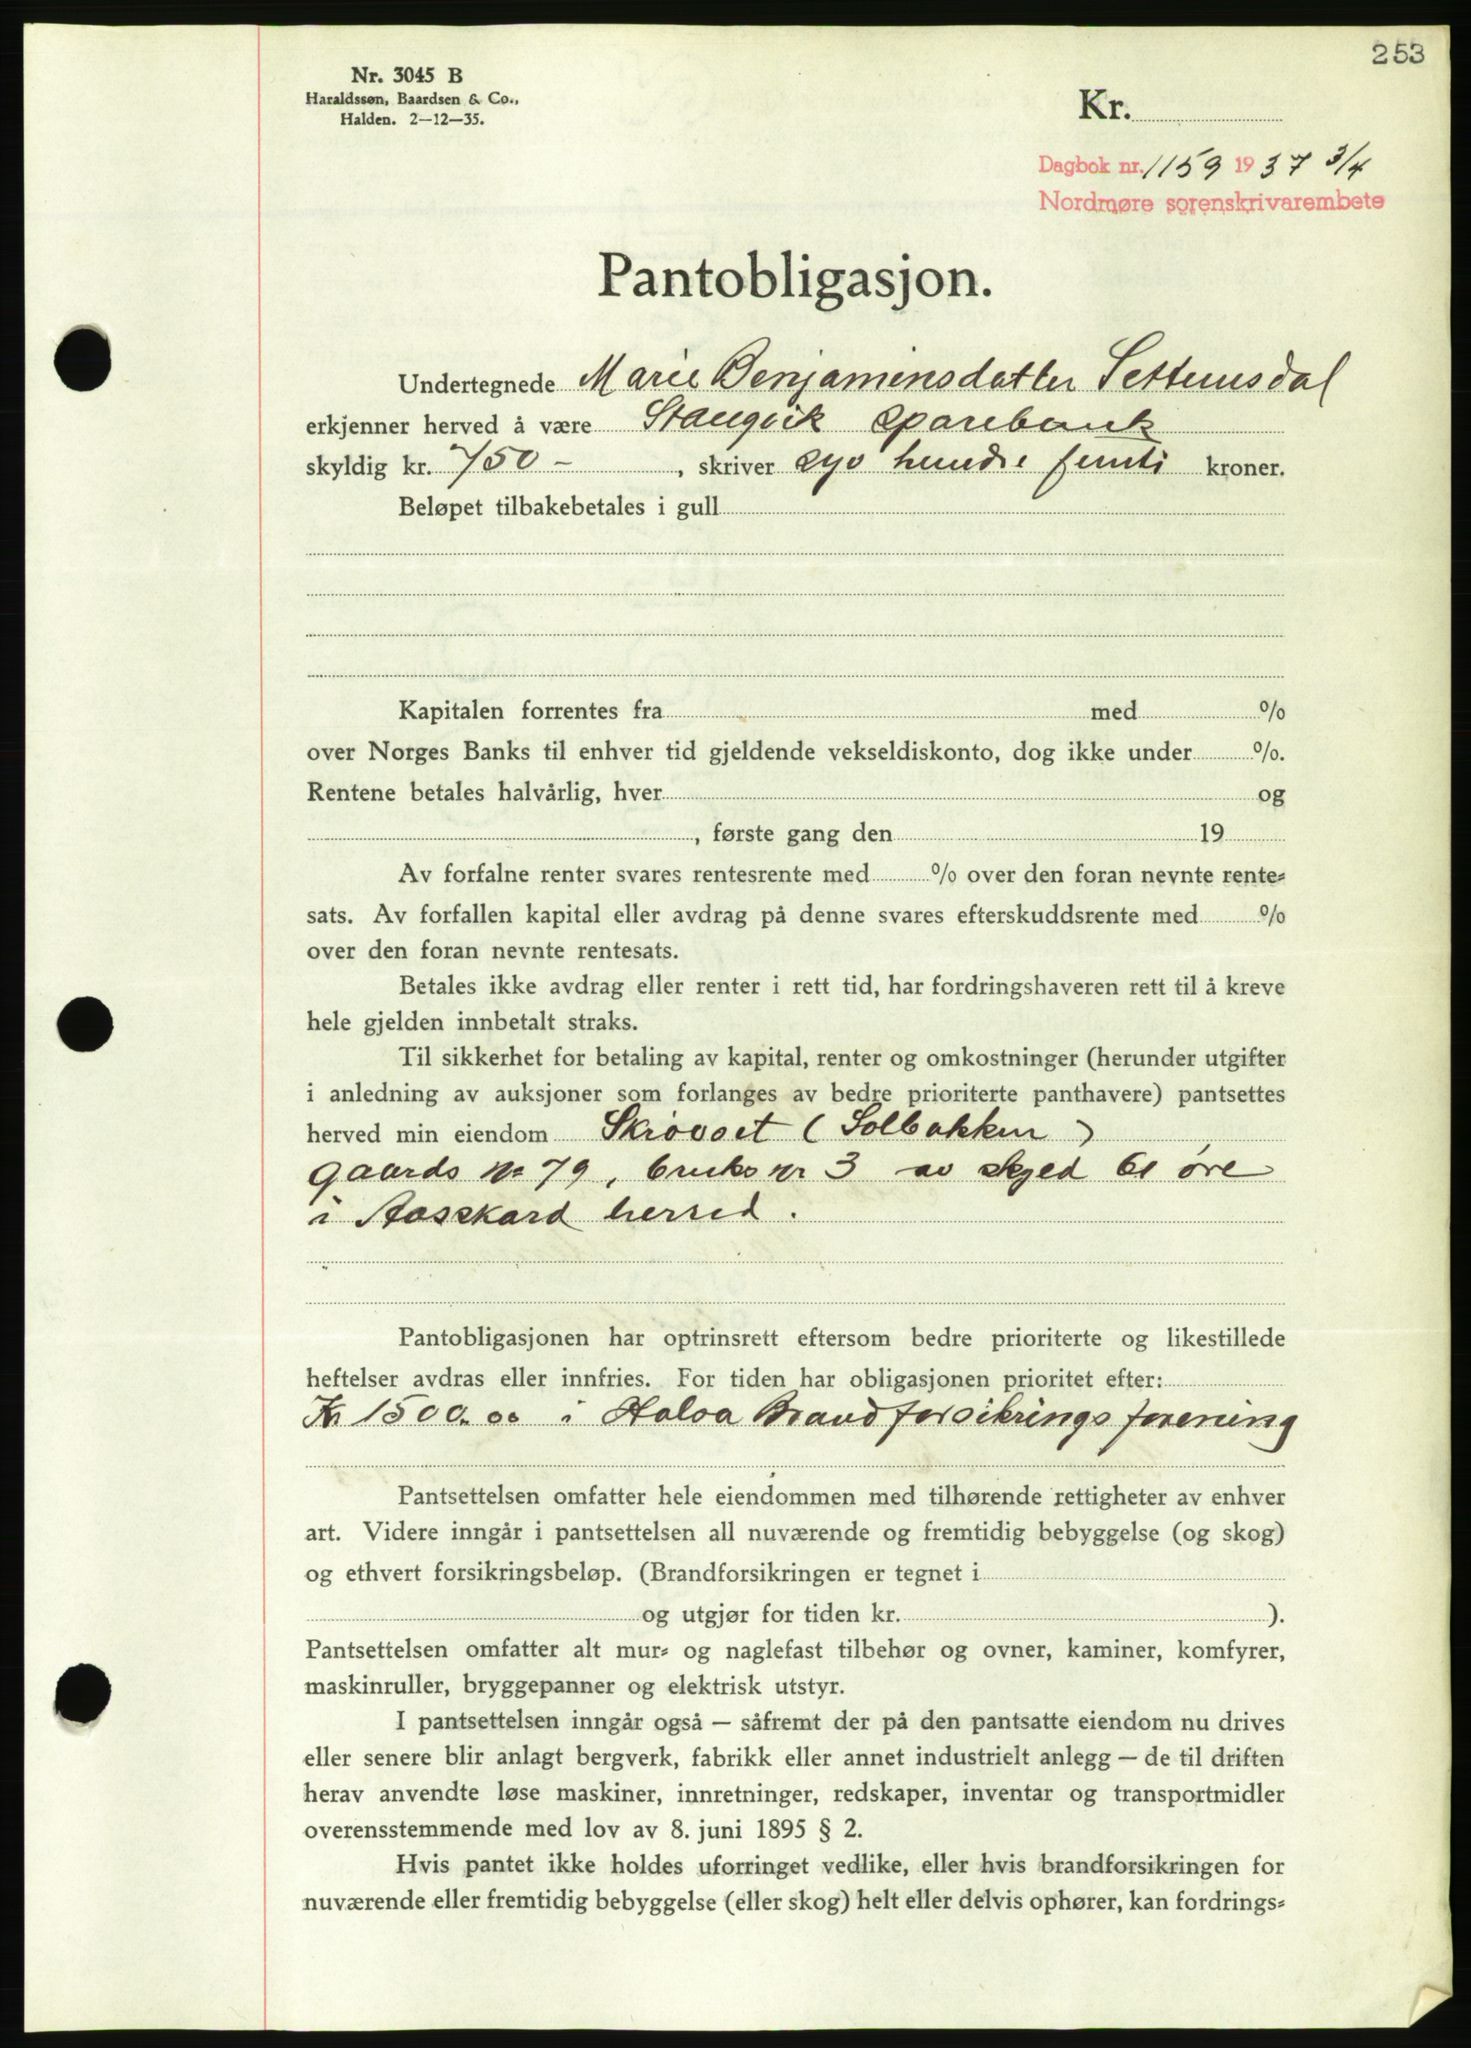 253
Nr. 3045 B
Haraldssøn, Baardsen & Co.,
Halden. 2—12—35.
Kr.
Dagbok nr. 1159 1937 3/4
Nordmøre sorenskrivarembete
Pantobligasjon.
Undertegnede Marie Benjaminsdatter Settemsdal
erkjenner herved å være Stangvik sparebank
skyldig kr. 750 - , skriver syv hundre femti kroner.
Beløpet tilbakebetales i gull
Kapitalen forrentes fra med %
over Norges Banks til enhver tid gjeldende vekseldiskonto, dog ikke under %.
Rentene betales halvårlig, hver og
, første gang den 19
Av forfalne renter svares rentesrente med % over den foran nevnte rente-
sats. Av forfallen kapital eller avdrag på denne svares efterskuddsrente med %
over den foran nevnte rentesats.
Betales ikke avdrag eller renter i rett tid, har fordringshaveren rett til å kreve
hele gjelden innbetalt straks.
Til sikkerhet for betaling av kapital, renter og omkostninger (herunder utgifter
i anledning av auksjoner som forlanges av bedre prioriterte panthavere) pantsettes
herved min eiendom Skrøvset (Solbakken)
gaards nr 79, bruks nr 3 av skyld 61 øre
i Aasskard herred.
Pantobligasjonen har optrinsrett eftersom bedre prioriterte og likestillede
heftelser avdras eller innfries. For tiden har obligasjonen prioritet efter:
Kr 1500.00 i Halsa Brandforsikringsforening
Pantsettelsen omfatter hele eiendommen med tilhørende rettigheter av enhver
art. Videre inngår i pantsettelsen all nuværende og fremtidig bebyggelse (og skog)
og ethvert forsikringsbeløp. (Brandforsikringen er tegnet i
og utgjør for tiden kr. ).
Pantsettelsen omfatter alt mur- og naglefast tilbehør og ovner, kaminer, komfyrer,
maskinruller, bryggepanner og elektrisk utstyr.
I pantsettelsen inngår også — såfremt der på den pantsatte eiendom nu drives
eller senere blir anlagt bergverk, fabrikk eller annet industrielt anlegg — de til driften
herav anvendte løse maskiner, innretninger, redskaper, inventar og transportmidler
overensstemmende med lov av 8. juni 1895 § 2.
Hvis pantet ikke holdes uforringet vedlike, eller hvis brandforsikringen for
nuværende eller fremtidig bebyggelse (eller skog) helt eller delvis ophører, kan fordrings-